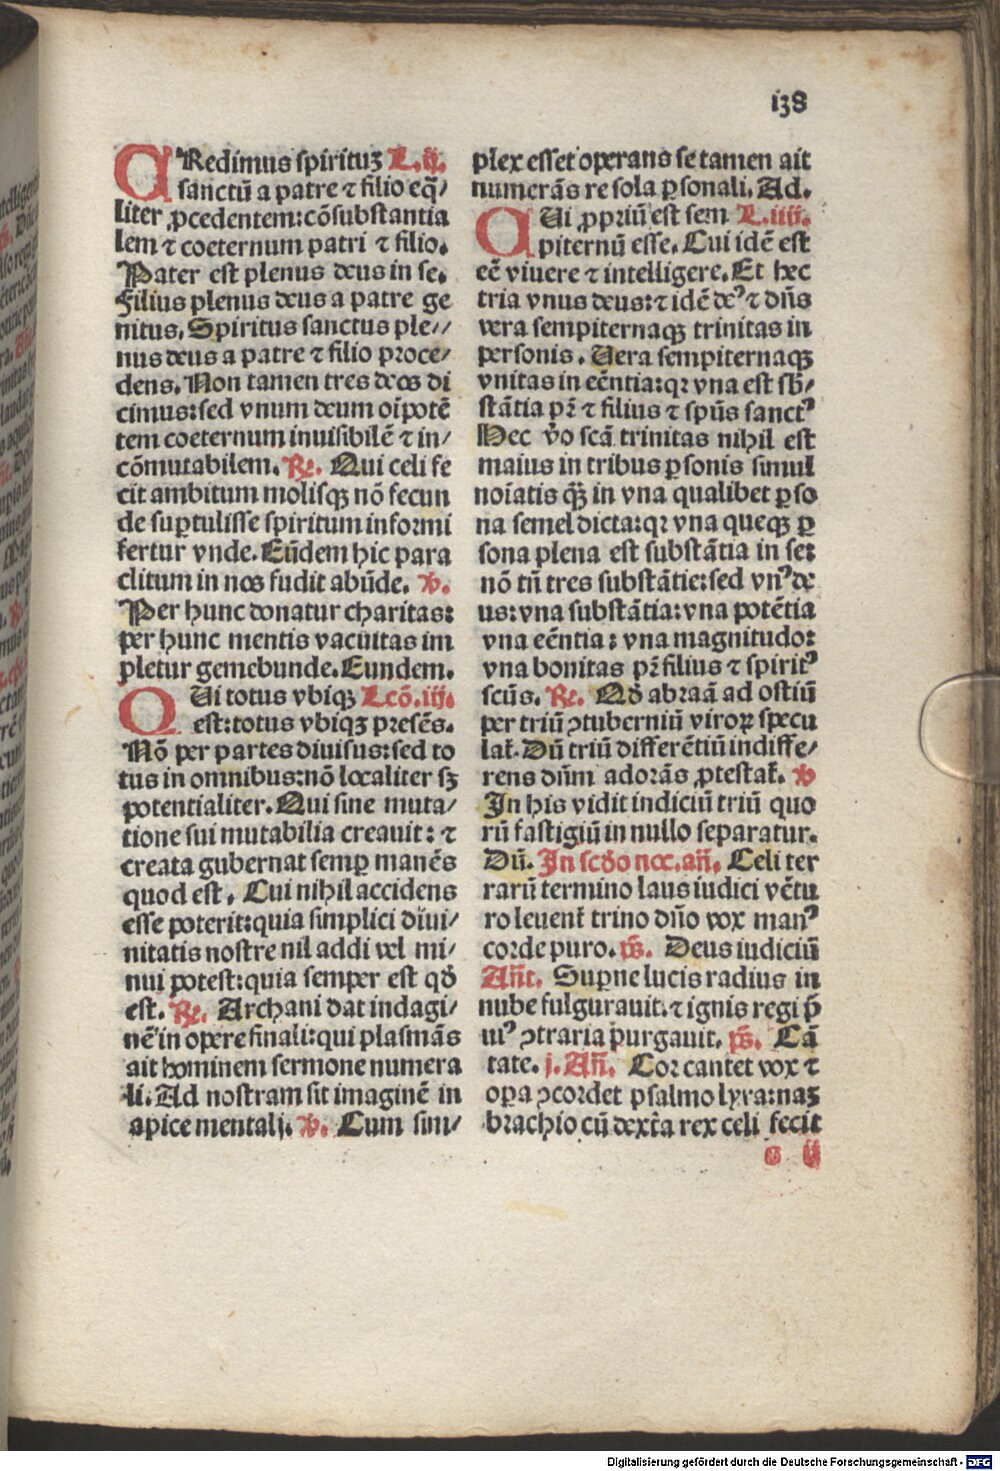 138
CRedimus spirituʒ L.ij.
sanctū a patre ⁊ filio eq̄/
liter ꝓcedentem:cōsubstantia
lem ⁊ coeternum patri ⁊ filio.
Pater est plenus deus in se.
Filius plenus deus a patre ge
nitus. Spiritus sanctus ple//
nus deus a patre ⁊ filio proce/
dens. Non tamen tres deos di
cimus:sed vnum deum oīpotē
tem coeternum inuisibilē ⁊ in/
cōmutabilem. ℟. Qui celi fe
cit ambitum molisqꝫ nō fecun
de suꝑtulisse spiritum informi
fertur vnde. Eūdem hic para
clitum in nos fudit abūde. ℣.
Per hunc donatur charitas:
per hunc mentis vacuitas im
pletur gemebunde. Eundem.
QUi totus vbiqꝫ Lcō.iij.
est:totus vbiqꝫ presēs.
Nō per partes diuisus:sed to
tus in omnibus:nō localiter sꝫ
potentialiter. Qui sine muta/
tione sui mutabilia creauit: ⁊
creata gubernat semꝑ manēs
quod est. Cui nihil accidens
esse poterit:quia simplici diui/
nitatis nostre nil addi vel mi/
nui potest:quia semper est qđ
est. ℟. Archani dat indagi/
nē in opere finali:qui plasmās
ait hominem sermone numera
li. Ad nostram sit imaginē in
apice mentali. ℣. Cum sim/
plex esset operans se tamen ait
numerās re sola ꝑsonali. Ad.
CUi ꝓpriū est sem L.iiij.
piternū esse. Cui idē est
eē viuere ⁊ intelligere. Et hec
tria vnus deus:⁊ idē deꝰ ⁊ dn̄s
vera sempiternaqꝫ trinitas in
personis. Uera sempiternaqꝫ
vnitas in eēntia:qꝛ vna est sb̄/
stātia pr̄ ⁊ filius ⁊ spūs sanctꝰ
Hec v̊o scā trinitas nihil est
maius in tribus ꝑsonis simul
noīatis q̄ꝫ in vna qualibet ꝑso
na semel dicta:qꝛ vna queqꝫ ꝑ
sona plena est substātia in se:
nō tn̄ tres substātie:sed vnꝰ de
us:vna substātia:vna potētia
vna eēntia: vna magnitudo:
vna bonitas pr̄ filius ⁊ spiritꝰ
scūs. ℟. Qđ abraā ad ostiū
per triū ꝯtuberniū viroꝝ specu
lat̄. Dū triū differētiū indiffe/
rens dūm adorās ꝓtestat̄. ℣
In his vidit indiciū triū quo
rū fastigiū in nullo separatur.
Dū. In scđo noc.an̄. Celi ter
rarū termino laus iudici vētu
ro leuent̄ trino dn̄o vox manꝰ
corde puro. ps̄. Deus iudiciū
An̄t. Suꝑne lucis radius in
nube fulgurauit.⁊ ignis regi p̄
uiꝰ ꝯtraria purgauit. ps̄. Cā
tate. j. An̄. Cor cantet vox ⁊
oꝑa ꝯcordet psalmo lyra:naꝫ
brachio cū dext̄a rex celi fecit